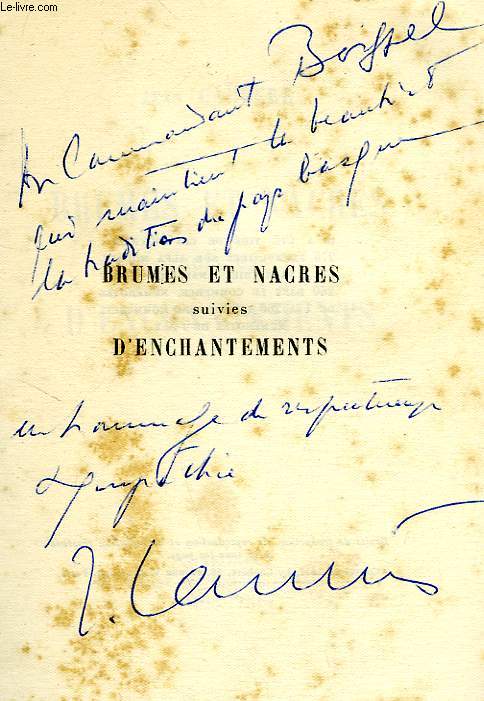 Le-livre.com
Au Commandant Boissel
qui maintient la beauté et
la tradition du pays basque
BRUMES ET NACRES
suivies
D'ENCHANTEMENTS
un hommage de respectueuse
sympathie